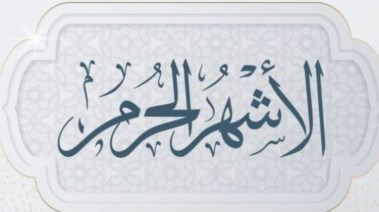 الأَشْهُر الحرم